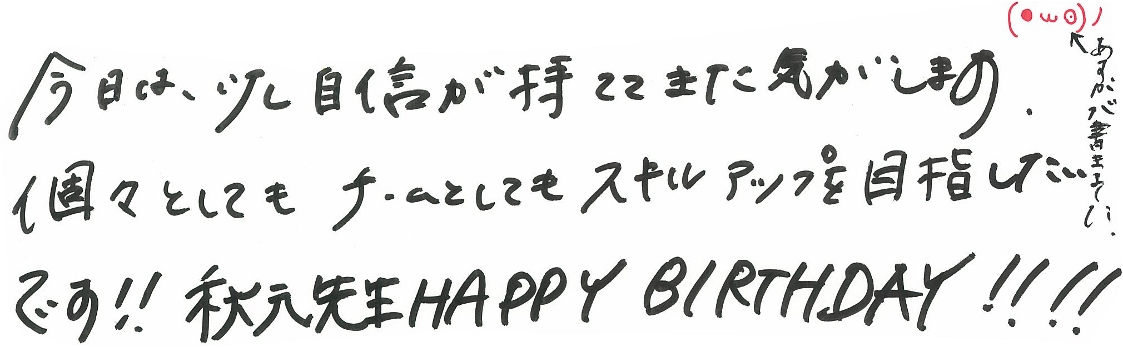 今日は、少し自信が持ててきた気がします.
個々としても チームとしても スキルアップを目指したい
です!! 秋元先生HAPPY BIRTHDAY !!!!
(●ω◎)ノ
あすかが書きました.